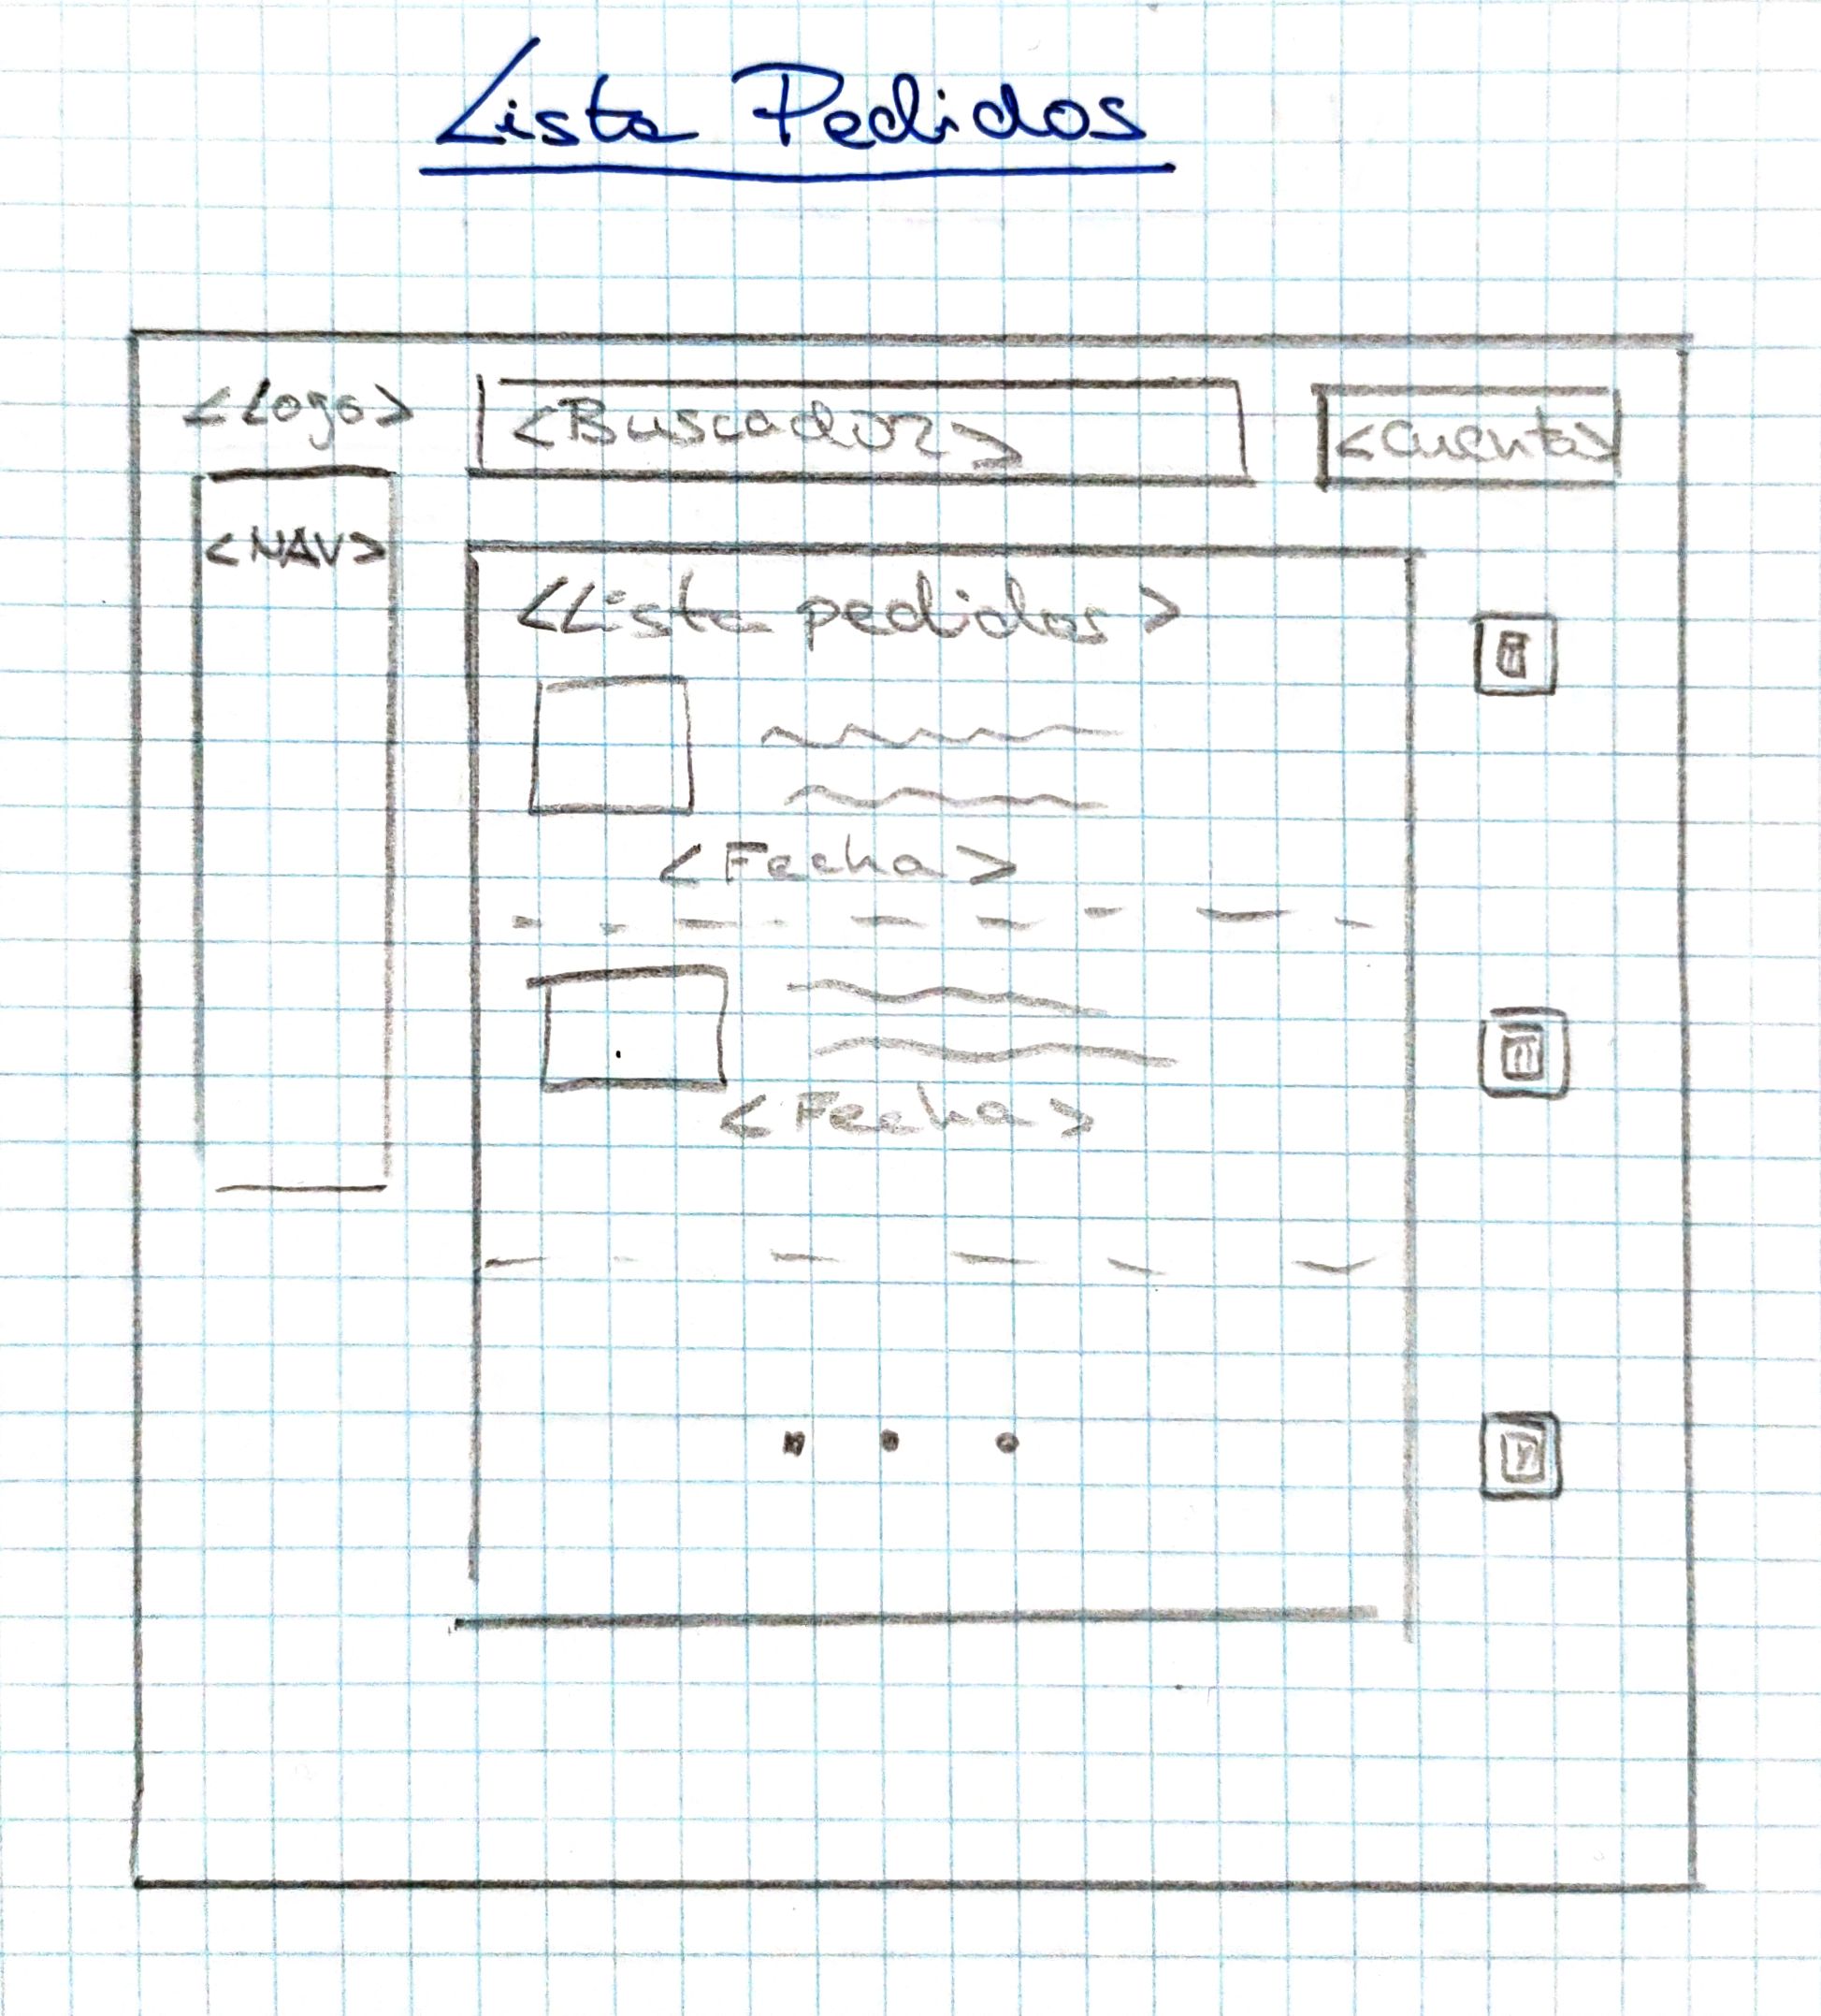 Lista Pedidos
<Logo> <Buscador> <Cuenta>
<NAV>
<Lista pedidos>
<Fecha>
<Fecha>